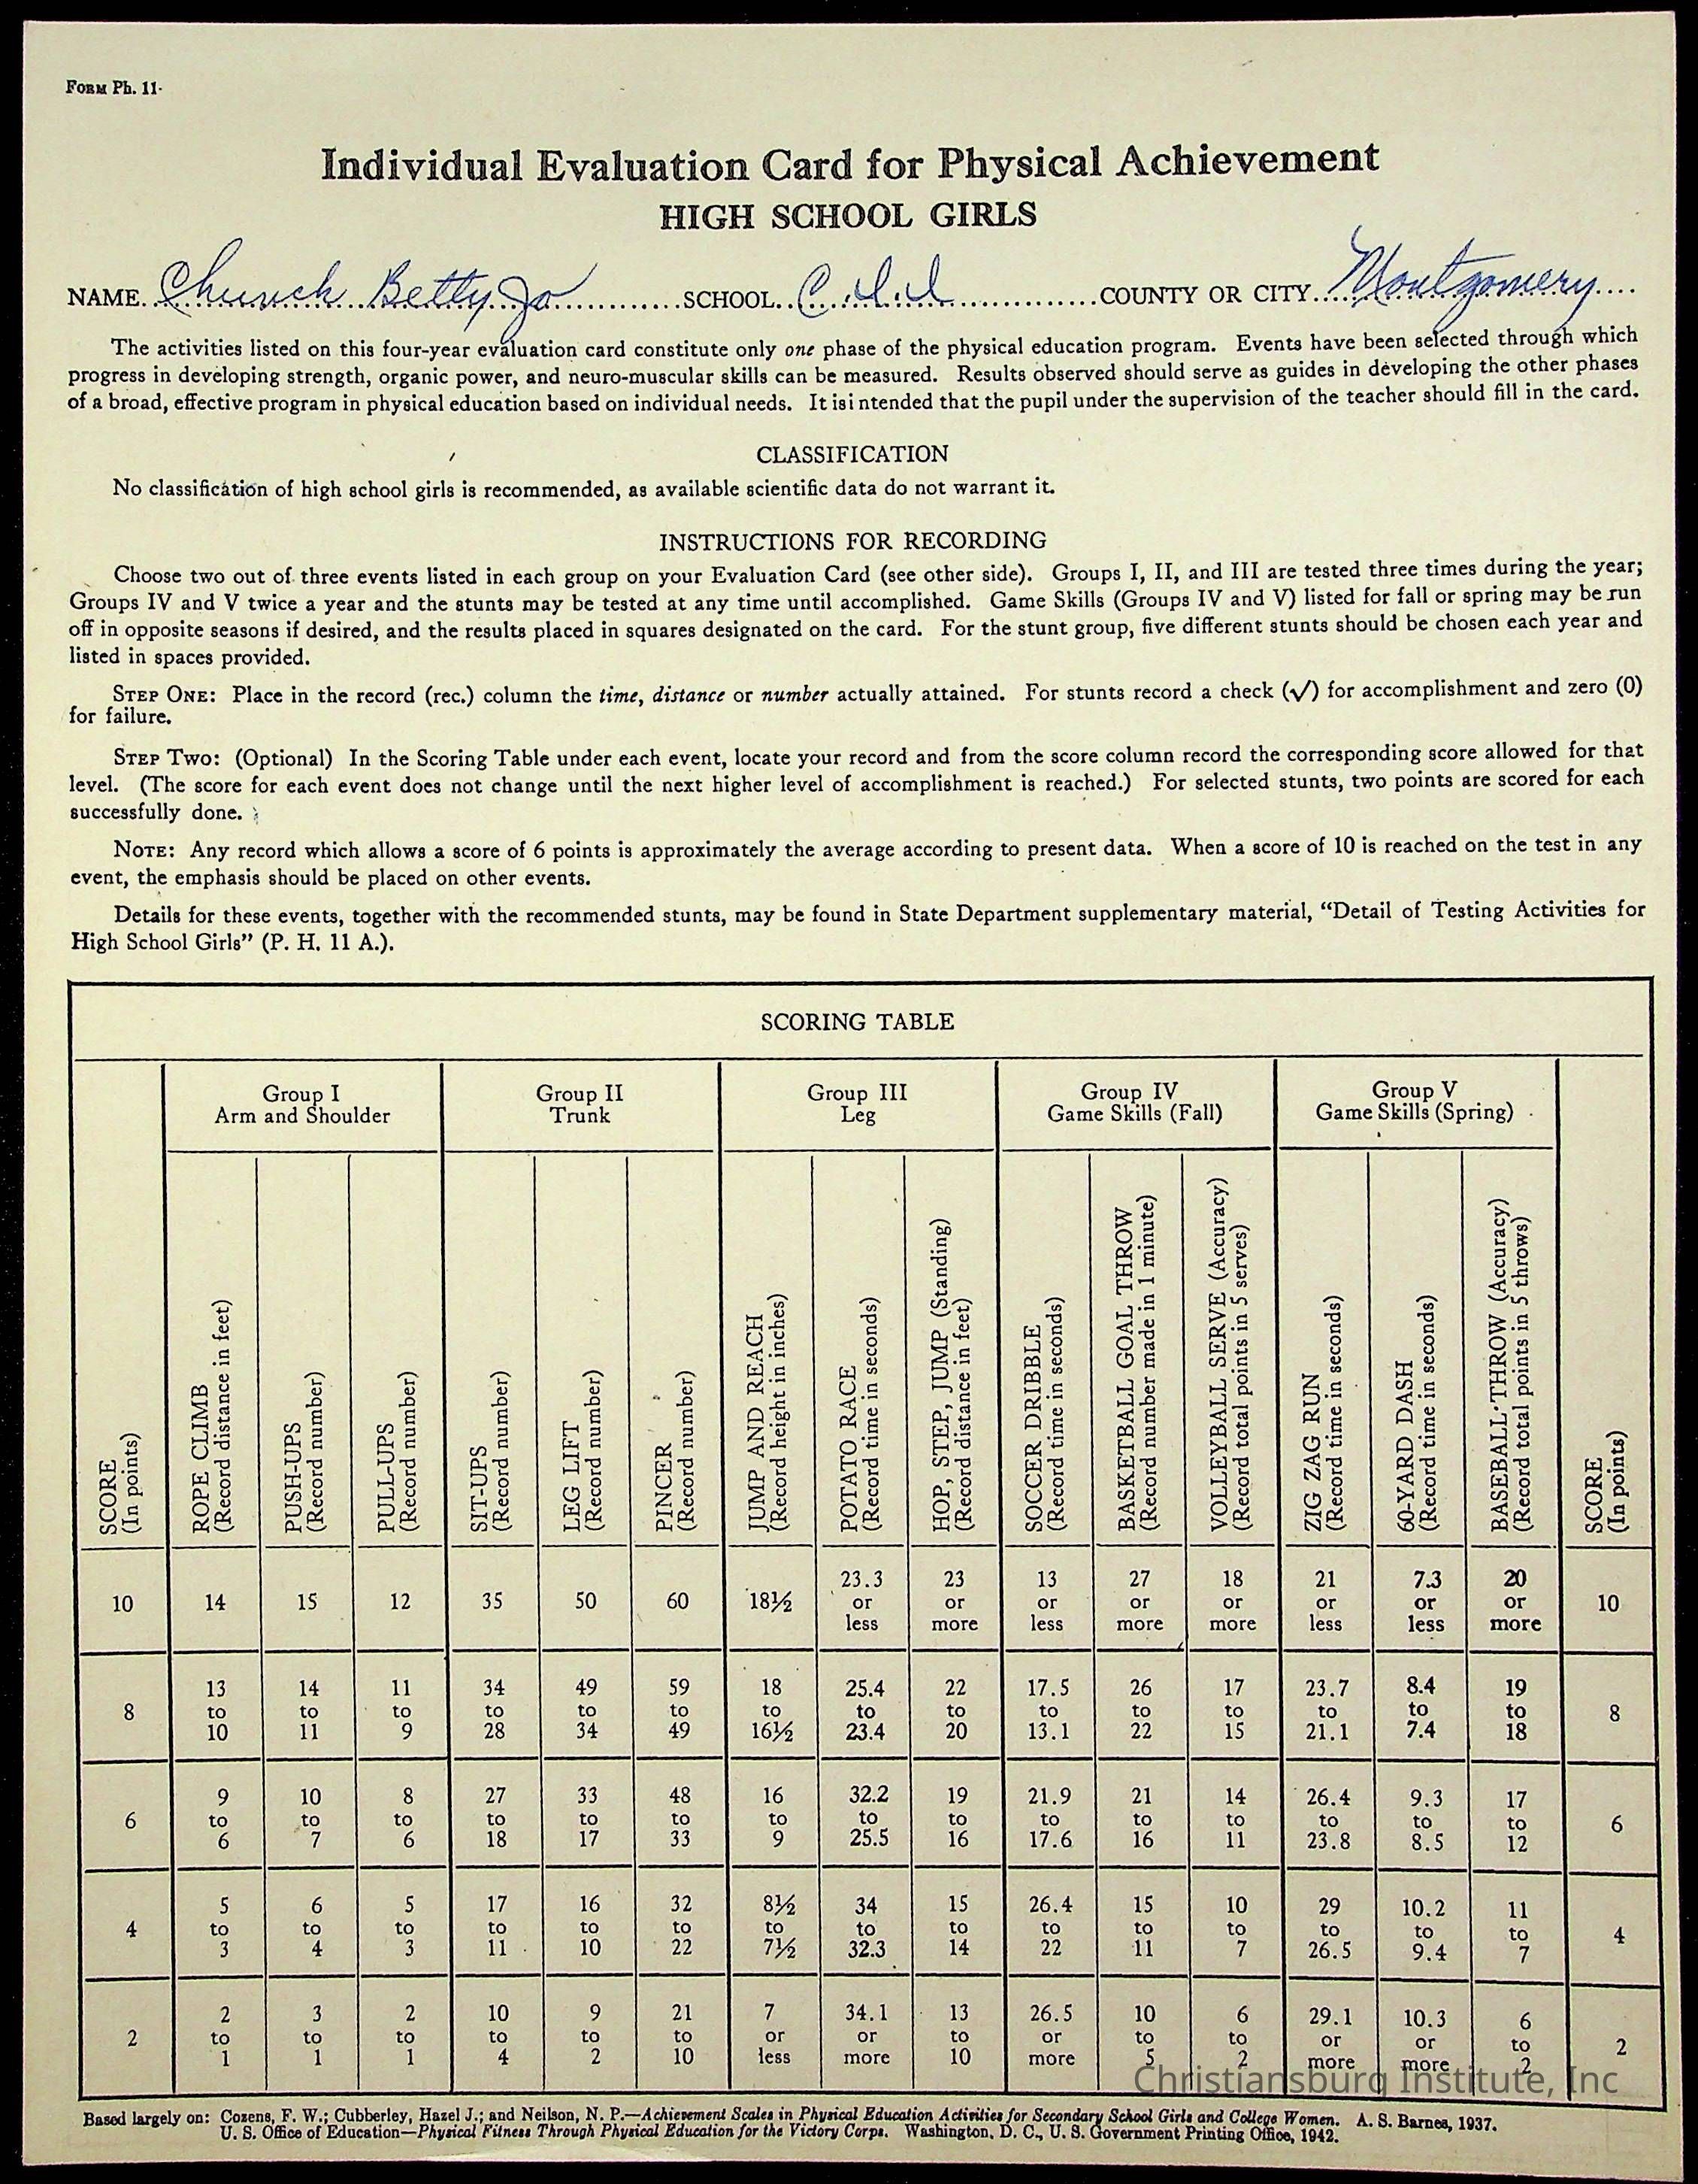 FORM Ph. 11·
Individual Evaluation Card for Physical Achievement
HIGH SCHOOL GIRLS
NAME. Church Betty Jo SCHOOL. C.I.I. COUNTY OR CITY. Montgomery
The activities listed on this four-year evaluation card constitute only one phase of the physical education program. Events have been selected through which
progress in developing strength, organic power, and neuro-muscular skills can be measured. Results observed should serve as guides in developing the other phases
of a broad, effective program in physical education based on individual needs. It isi ntended that the pupil under the supervision of the teacher should fill in the card.
CLASSIFICATION
No classification of high school girls is recommended, as available scientific data do not warrant it.
INSTRUCTIONS FOR RECORDING
Choose two out of three events listed in each group on your Evaluation Card (see other side). Groups I, II, and III are tested three times during the year;
Groups IV and V twice a year and the stunts may be tested at any time until accomplished. Game Skills (Groups IV and V) listed for fall or spring may be run
off in opposite seasons if desired, and the results placed in squares designated on the card. For the stunt group, five different stunts should be chosen each year and
listed in spaces provided.
STEP ONE: Place in the record (rec.) column the time, distance or number actually attained. For stunts record a check (√) for accomplishment and zero (0)
for failure.
STEP TWO: (Optional) In the Scoring Table under each event, locate your record and from the score column record the corresponding score allowed for that
level. (The score for each event does not change until the next higher level of accomplishment is reached.) For selected stunts, two points are scored for each
successfully done.
NOTE: Any record which allows a score of 6 points is approximately the average according to present data. When a score of 10 is reached on the test in any
event, the emphasis should be placed on other events.
Details for these events, together with the recommended stunts, may be found in State Department supplementary material, "Detail of Testing Activities for
High School Girls" (P. H. 11 A.).
SCORING TABLE
Group I Group II Group III Group IV Group V
Arm and Shoulder Trunk Leg Game Skills (Fall) Game Skills (Spring)
SCORE
(In points)
ROPE CLIMB
(Record distance in feet)
PUSH-UPS
(Record number)
PULL-UPS
(Record number)
SIT-UPS
(Record number)
LEG LIFT
(Record number)
PINCER
(Record number)
JUMP AND REACH
(Record height in inches)
POTATO RACE
(Record time in seconds)
HOP, STEP, JUMP (Standing)
(Record distance in feet)
SOCCER DRIBBLE
(Record time in seconds)
BASKETBALL GOAL THROW
(Record number made in 1 minute)
VOLLEYBALL SERVE (Accuracy)
(Record total points in 5 serves)
ZIG ZAG RUN
(Record time in seconds)
60-YARD DASH
(Record time in seconds)
BASEBALL THROW (Accuracy)
(Record total points in 5 throws)
SCORE
(In points)
23.3 23 13 27 18 21 7.3 20
10 14 15 12 35 50 60 18½ or or or or or or or or 10
less more less more more less less more
13 14 11 34 49 59 18 25.4 22 17.5 26 17 23.7 8.4 19
8 to to to to to to to to to to to to to to to 8
10 11 9 28 34 49 16½ 23.4 20 13.1 22 15 21.1 7.4 18
9 10 8 27 33 48 16 32.2 19 21.9 21 14 26.4 9.3 17
6 to to to to to to to to to to to to to to to 6
6 7 6 18 17 33 9 25.5 16 17.6 16 11 23.8 8.5 12
5 6 5 17 16 32 8½ 34 15 26.4 15 10 29 10.2 11
4 to to to to to to to to to to to to to to to 4
3 4 3 11 10 22 7½ 32.3 14 22 11 7 26.5 9.4 7
2 3 2 10 9 21 7 34.1 13 26.5 10 6 29.1 10.3 6
2 to to to to to to or or to or to to or or to 2
1 1 1 4 2 10 less more 10 more 5 2 more more 2
Christiansburg Institute, Inc
Based largely on: Cozens, F. W.; Cubberley, Hazel J.; and Neilson, N. P.—Achievement Scales in Physical Education Activities for Secondary School Girls and College Women. A. S. Barnes, 1937.
U. S. Office of Education—Physical Fitness Through Physical Education for the Victory Corps. Washington, D. C., U. S. Government Printing Office, 1942.